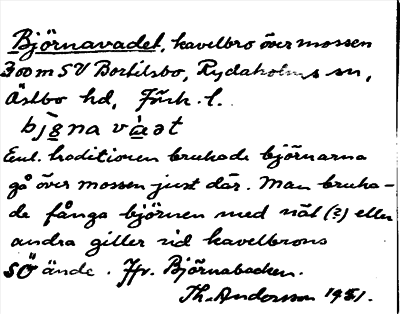 Björnavadet, kavelbro över mossen
300 m SV Bortilsbo, Rydaholms sn,
Östbo hd, Jönk. l.
bjø̀na vàət
Enl. traditionen brukade björnarna
gå över mossen just där. Man bruka-
de fånga björnen med nät (?) eller
andra giller vid kavelbrons
SÖ ände. Jfr. Björnabacken.
Th. Andersson 1951.